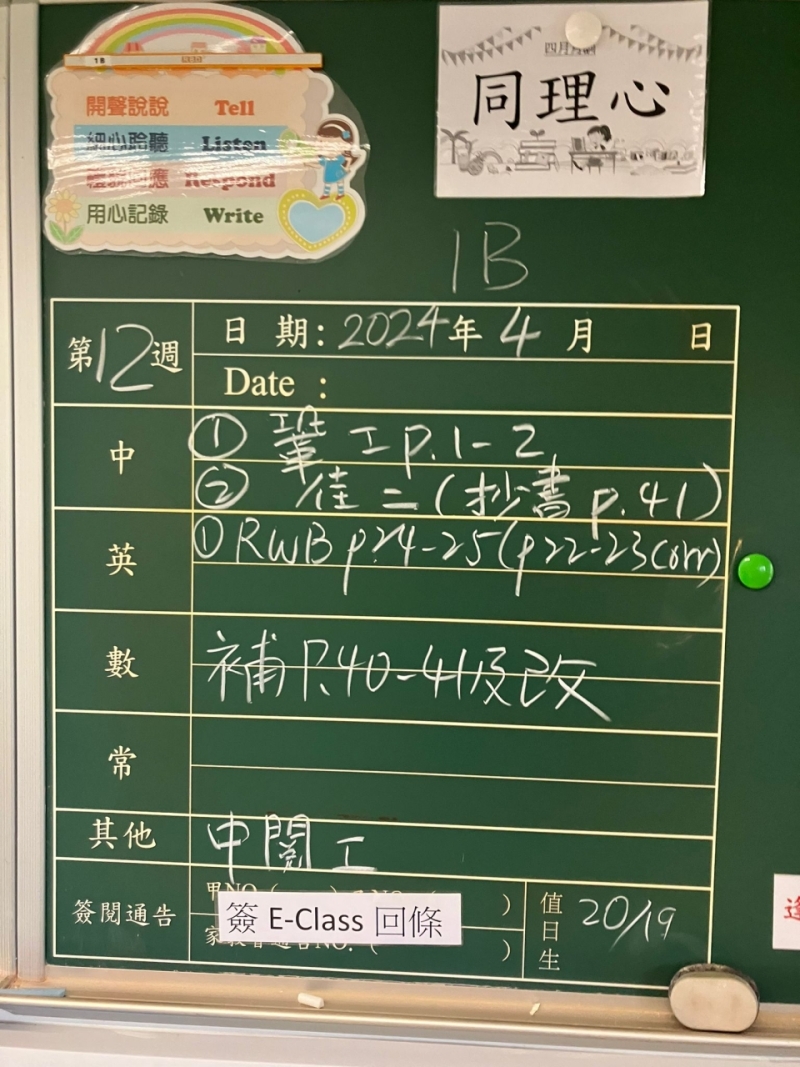 1B
開聲說說 Tell
細心聆聽 Listen
Respond
用心記錄 Write
四月
同理心
1B
第12週
日期：2024年4月 日
Date :
中
① 鞏工p.1-2
② 佳二(抄書p.41)
英
①RWB p.24-25(p22-23corr)
數
補P.40-41及改
常
其他
中閱工
簽閱通告
簽 E-Class 回條
值日生
20/19